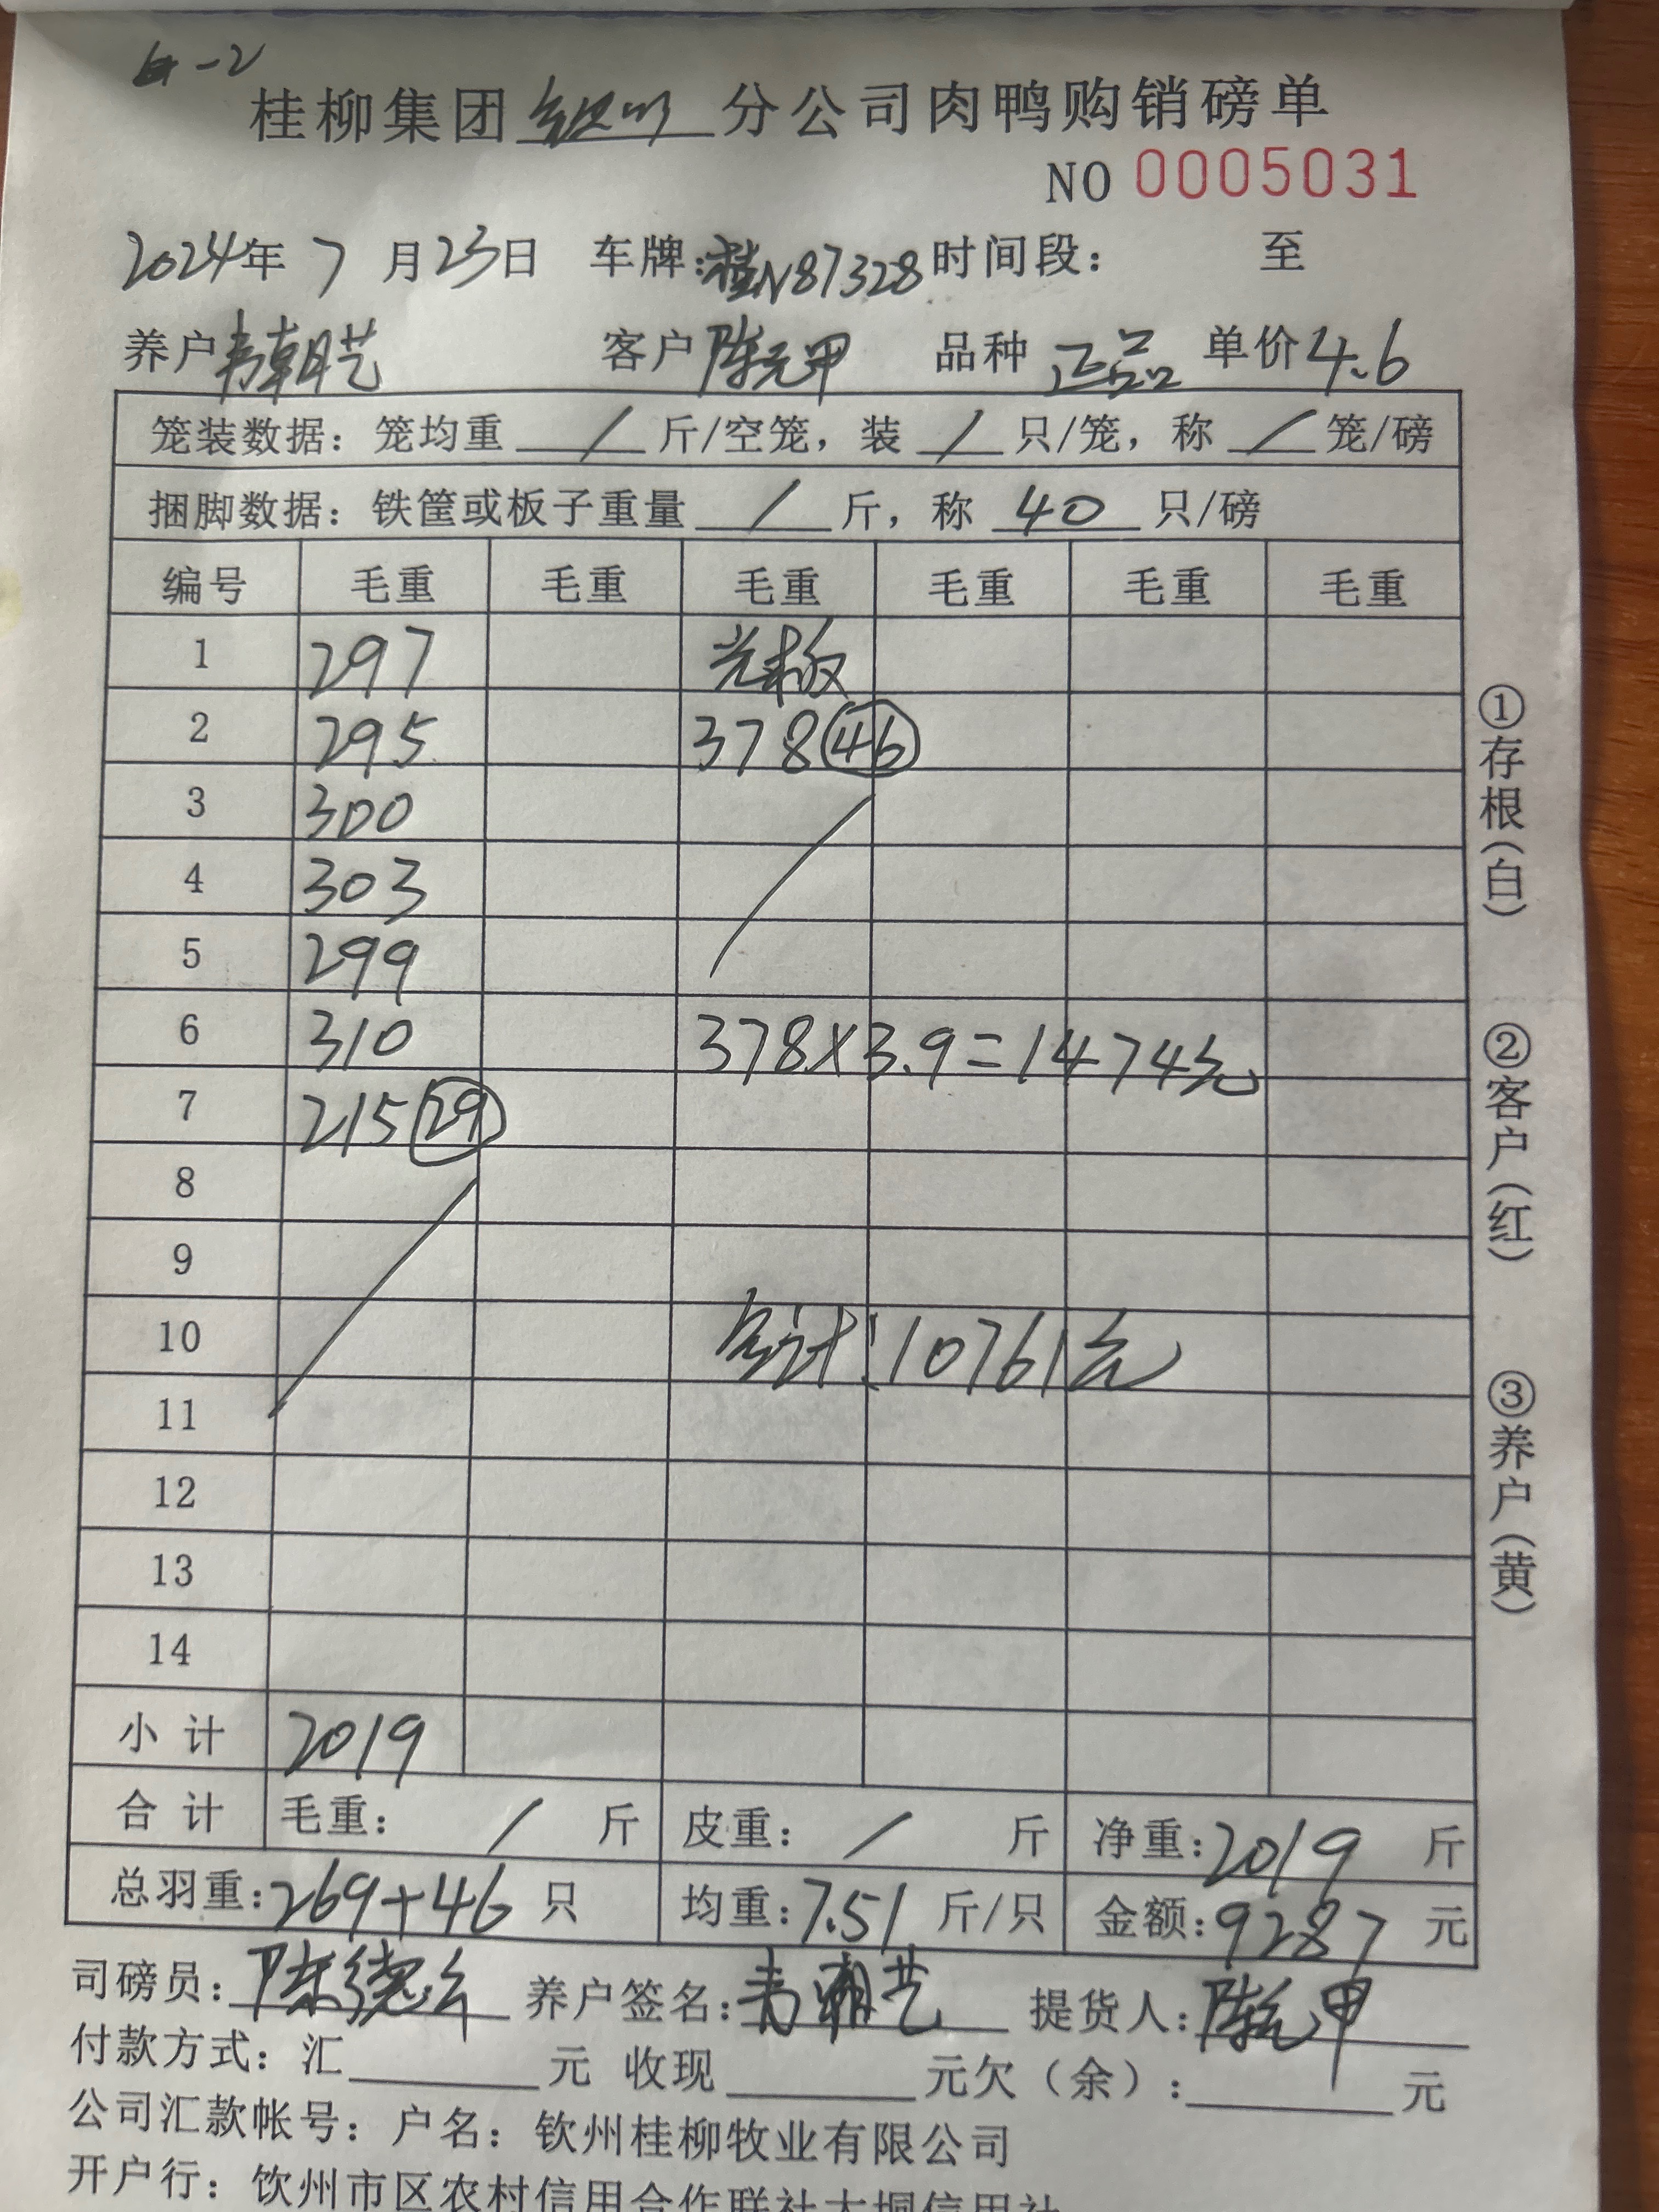 桂柳集团 分公司肉鸭购销磅单
NO 0005031
2024年 7 月 23日 车牌:桂N87328 时间段: 至
养户 韦朝艺 客户 陈元甲 品种 正品 单价 4.6
笼装数据: 笼均重 / 斤/空笼, 装 / 只/笼, 称 / 笼/磅
捆脚数据: 铁筐或板子重量 / 斤, 称 40 只/磅
编号 毛重 毛重 毛重 毛重 毛重 毛重
1 297
2 295 378 46
3 300
4 303
5 299
6 310 378×3.9=1474元
7 215 29
8
9
10 合计:10761元
11
12
13
14
小计 2019
合计 毛重: / 斤 皮重: / 斤 净重:2019 斤
总羽重:269+46 只 均重:7.51 斤/只 金额:9287 元
司磅员: 养户签名:韦朝艺 提货人:陈元甲
付款方式: 汇 元 收现 元欠(余): 元
公司汇款帐号: 户名: 钦州桂柳牧业有限公司
开户行: 钦州市区农村信用合作联社大垌信用社
①存根(白) ②客户(红) ③养户(黄)